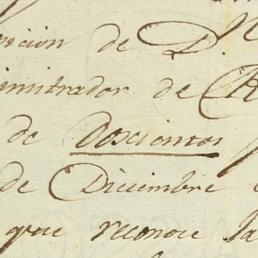 icion de D.
inistrador de
de Doscientos
de Diciembre
que reconoce la